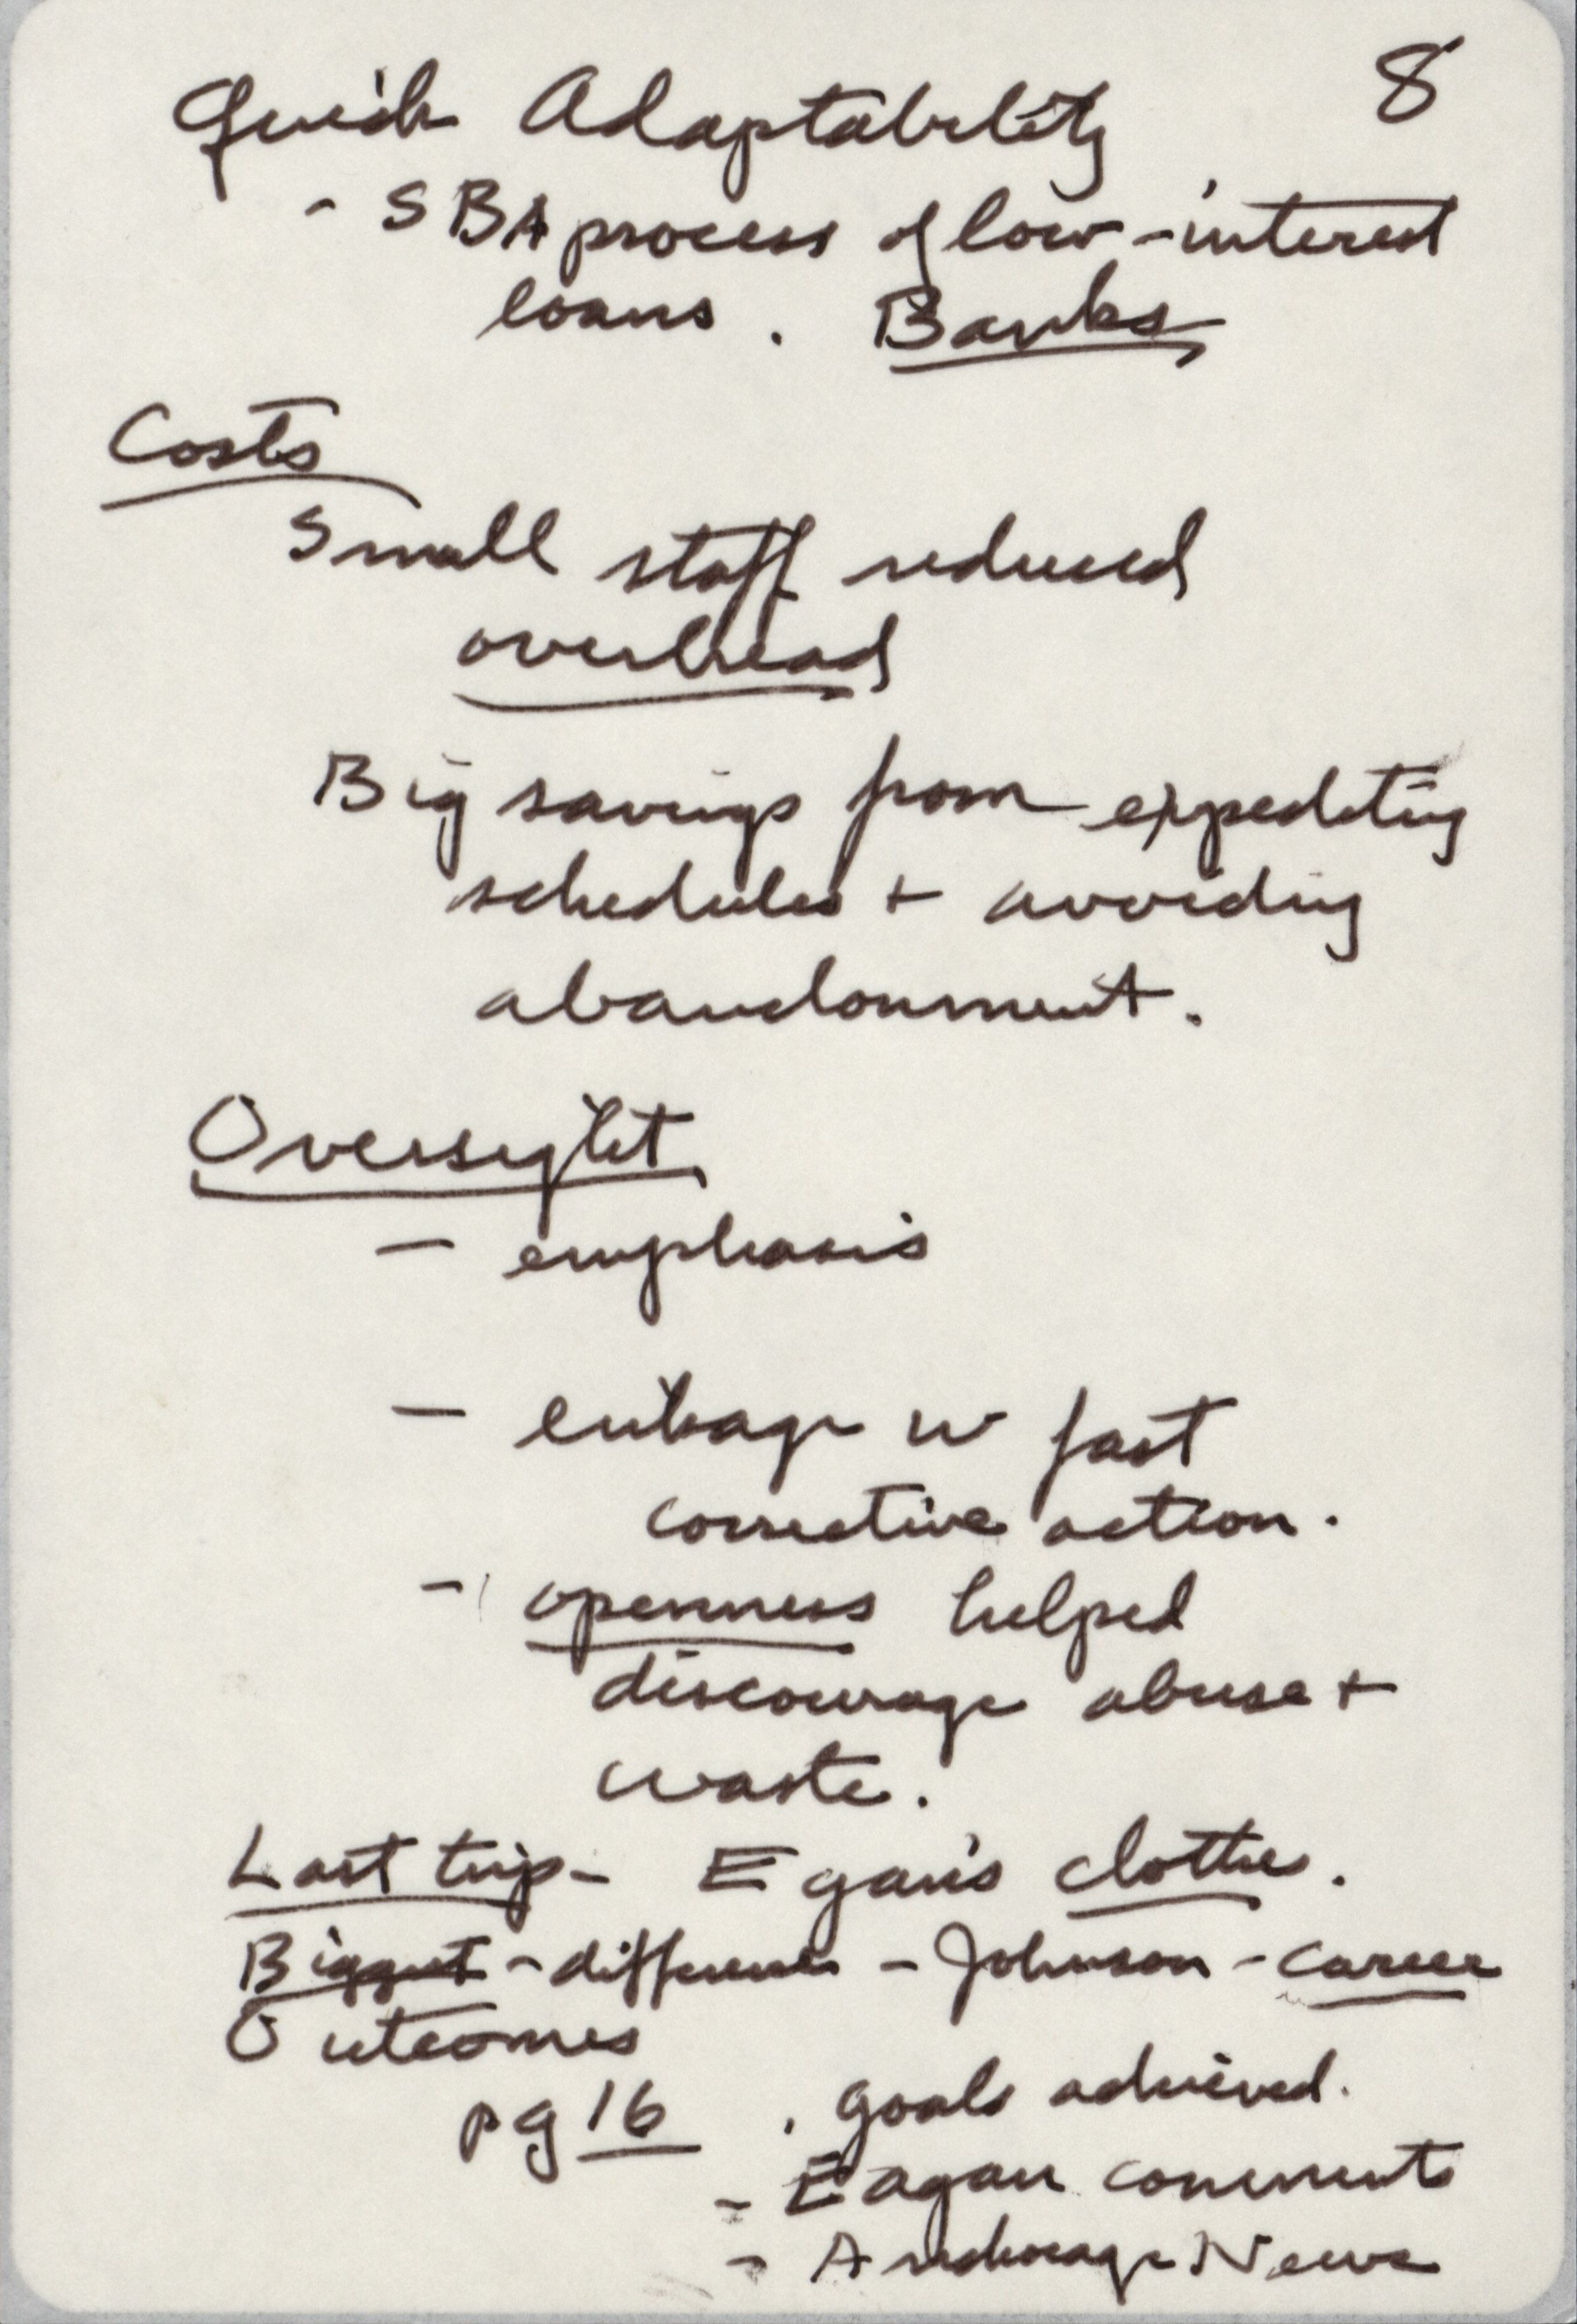 Quick Adaptability 8
- SBA process of low-interest
loans. Banks
Costs
Small staff reduced
overhead
Big savings from expediting
schedules + avoiding
abandonment.
Oversight
- emphasis
- w fast
corrective action.
- openness helped
discourage abuse +
waste.
Last trip - Egan's clothes.
Biggest - difference - Johnson - career
Outcomes
pg 16 . goals achieved.
- Eagan comments
- Anchorage News